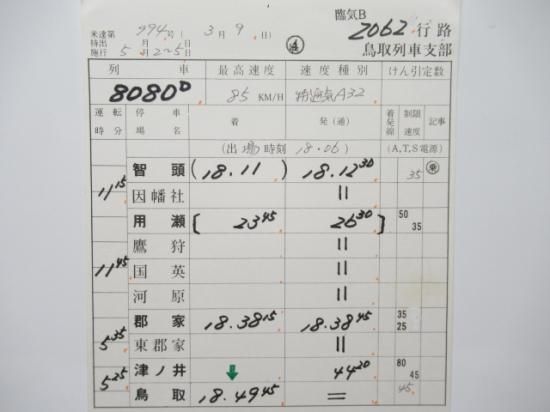 臨気B
米達第 994号 (3月9日)
時出 月 日
施行 5月2~5日
④ 2062 行路
鳥取列車支部
列 車 最高速度 速度種別 けん引定数
8080D 85 KM/H 特通気A32
運転時分 停車場名 着 発(通) 着発線 制限速度 記事
(出場時刻 18.06) (A,T,S電源)
智頭 (18.11) 18.12 30 35
11 15 因幡社 ||
用瀬 [23 45 26 30] 50 35
鷹狩 ||
11 45 国英 ||
河原 ||
郡家 18.38 15 18.38 45 35 25
5 35 東郡家 ||
津ノ井 ↓ 44 20 80 45
5 25 鳥取 18.49 45 = 45